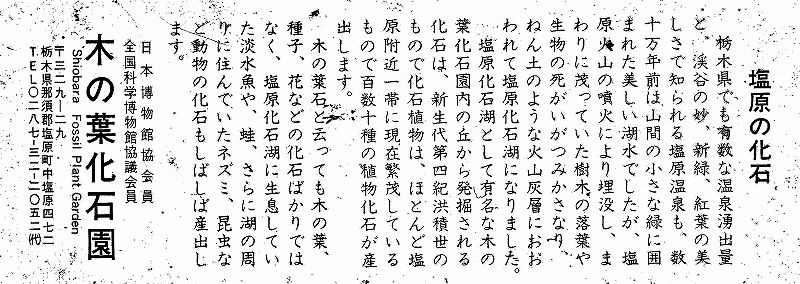 塩原の化石
栃木県でも有数な温泉湧出量
と、渓谷の妙、新緑、紅葉の美
しさで知られる塩原温泉も、数
十万年前は山間の小さな緑に囲
まれた美しい湖水でしたが、塩
原火山の噴火により埋没し、ま
わりに茂っていた樹木の落葉や
生物の死がいがつみかさなり、
ねん土のような火山灰層におお
われて塩原化石湖になりました。
塩原化石湖として有名な木の
葉化石園内の丘から発掘される
化石は、新生代第四紀洪積世の
もので化石植物は、ほとんど塩
原附近一帯に現在繁茂している
もので百数十種の植物化石が産
出します。
木の葉石と云っても木の葉、
種子、花などの化石ばかりでは
なく、塩原化石湖に生息してい
た淡水魚や、蛙、さらに湖の周
りに住んでいたネズミ、昆虫な
ど動物の化石もしばしば産出し
ます。
日本博物館協会員
全国科学博物館協議会員
木の葉化石園
Shiobara Fossil Plant Garden
〒三二九―二九
栃木県那須郡塩原町中塩原四七二
TEL〇二八七-三二-二〇五二㈹